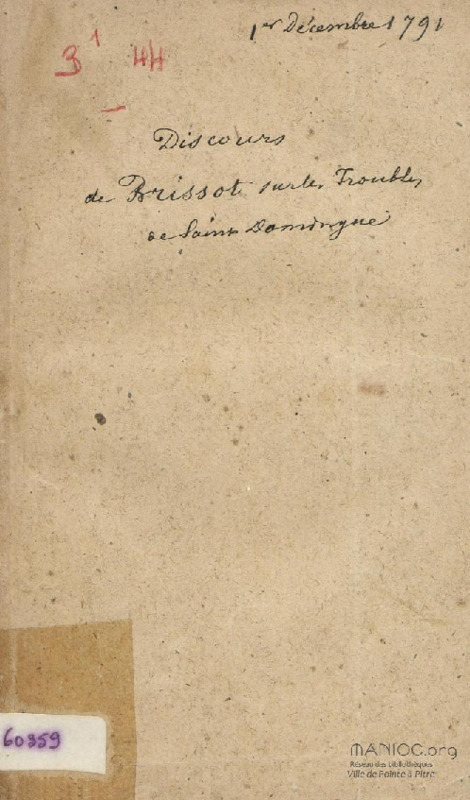 1er Décembre 1791
3 1 44
Discours
de Brissot sur les Troubles
de Saint Domingue
60359
MANIOC.org
Réseau des bibliothèques
Ville de Pointe à Pitre